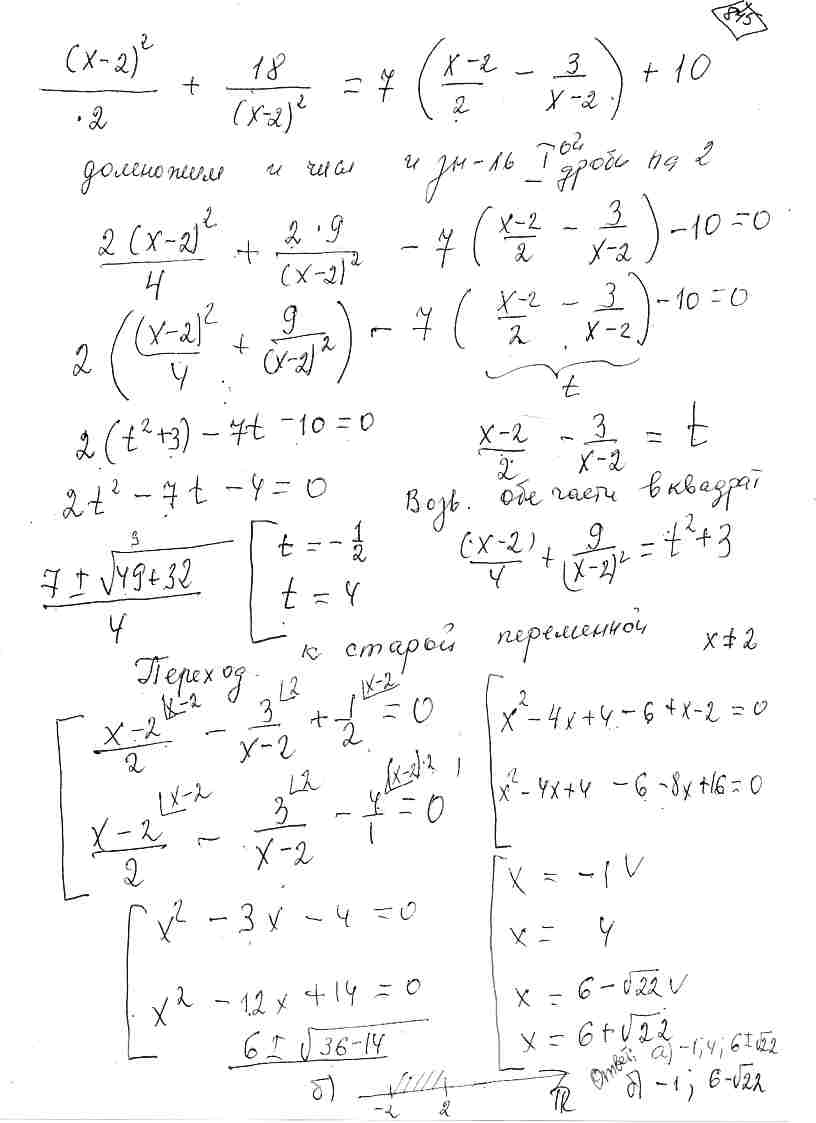 (x-2)²/2 + 18/(x-2)² = 7 ( (x-2)/2 - 3/(x-2) ) + 10
домножим и числ и зн-ль I ой дроби на 2
2(x-2)²/4 + 2·9/(x-2)² - 7 ( (x-2)/2 - 3/(x-2) ) - 10 = 0
2 ( (x-2)²/4 + 9/(x-2)² ) - 7 ( (x-2)/2 - 3/(x-2) ) - 10 = 0
t
2(t²+3) - 7t - 10 = 0
(x-2)/2 - 3/(x-2) = t
2t² - 7t - 4 = 0
Возв. обе части в квадрат
(x-2)/4 + 9/(x-2)² = t² + 3
3
(7 ± √(49+32))/4
[ t = -1/2
t = 4
Переход. к старой переменной x ≠ 2
[ (x-2)/2 ⌊x-2 - 3/(x-2) ⌊2 + 1/2 ⌊x-2 = 0
(x-2)/2 ⌊x-2 - 3/(x-2) ⌊2 - 4/1 ⌊(x-2)·2 = 0
[ x² - 4x + 4 - 6 + x - 2 = 0
x² - 4x + 4 - 6 - 8x + 16 = 0
[ x² - 3x - 4 = 0
x² - 12x + 14 = 0
6 ± √(36-14)
[ x = -1 V
x = 4
x = 6 - √22 V
x = 6 + √22
б) -2 2 R
Ответ: а) -1; 4; 6 ± √22
б) -1; 6 - √22